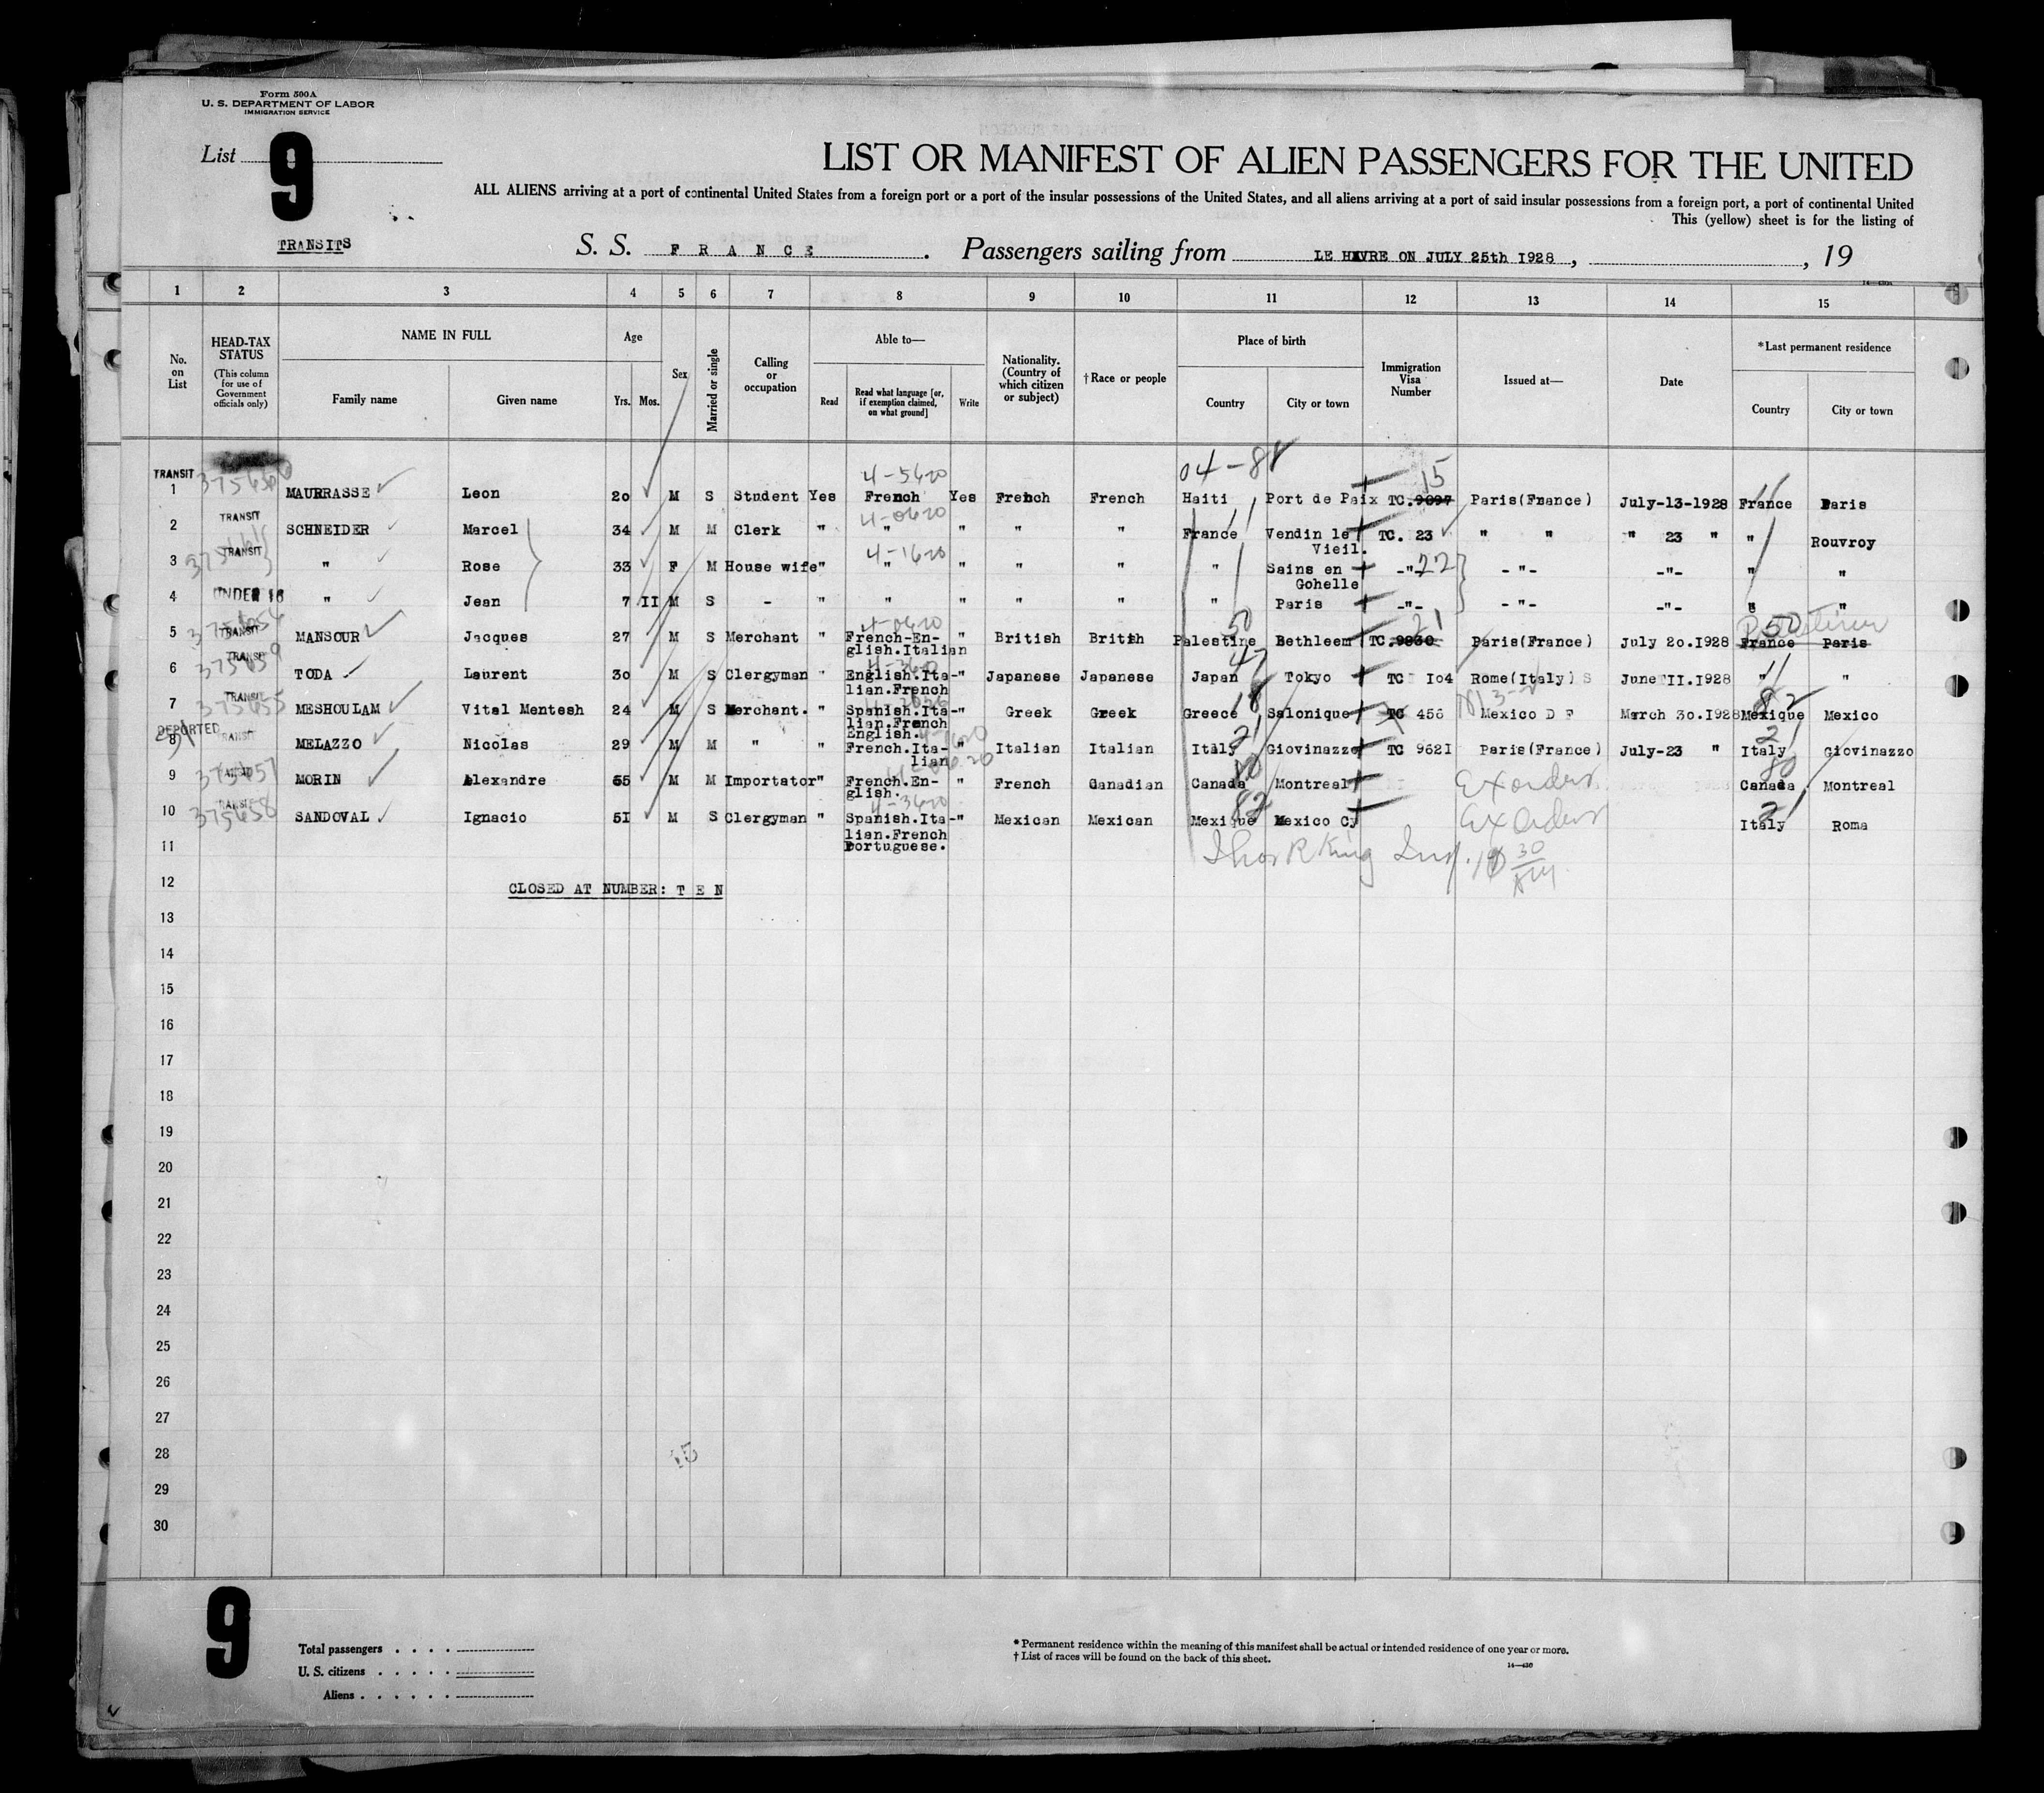 Form 500A
U. S. DEPARTMENT OF LABOR
IMMIGRATION SERVICE
List 9
LIST OR MANIFEST OF ALIEN PASSENGERS FOR THE UNITED
ALL ALIENS arriving at a port of continental United States from a foreign port or a port of the insular possessions of the United States, and all aliens arriving at a port of said insular possessions from a foreign port, a port of continental United
This (yellow) sheet is for the listing of
TRANSITS
S. S. FRANCE. Passengers sailing from LE HAVRE ON JULY 25th 1928, , 19
1 2 3 4 5 6 7 8 9 10 11 12 13 14 15
No. on List
HEAD-TAX STATUS
(This column for use of Government officials only)
NAME IN FULL
Family name
Given name
Age
Yrs.
Mos.
Sex
Married or single
Calling or occupation
Able to—
Read
Read what language [or, if exemption claimed, on what ground]
Write
Nationality. (Country of which citizen or subject)
†Race or people
Place of birth
Country
City or town
Immigration Visa Number
Issued at—
Date
*Last permanent residence
Country
City or town
04-8
4-5620
15
TRANSIT 1 MAURRASSE Leon 20 M S Student Yes French Yes French French Haiti Port de Paix TC.9097 Paris(France) July-13-1928 France Paris
4-0620
TRANSIT 2 SCHNEIDER Marcel 34 M M Clerk " " " " " France Vendin le Vieil. TC. 23 " " " 23 " " Rouvroy
4-1620
TRANSIT 3 " Rose 33 F M House wife " " " " " " Sains en Gohelle -"- 22 -"- -"- " "
UNDER 16 4 " Jean 7 II M S - " " " " " " Paris -"- -"- -"- " "
4-0620
50 21 50
375654 TRANSIT 5 MANSOUR Jacques 27 M S Merchant " French-English.Italian " British Britih Palestine Bethleem TC.9930 Paris(France) July 20.1928 France Paris
4-3620
375659 TRANSIT 6 TODA Laurent 30 M S Clergyman " English.Italian.French " Japanese Japanese Japan 47 Tokyo TC I04 Rome(Italy) June II.1928 " "
375655 TRANSIT 7 MESHOULAM Vital Mentesh 24 M S Merchant. " Spanish.Italian.French English. " Greek Greek Greece 18 Salonique TC 456 Mexico D F March 30.1928 Mexique 82 Mexico
DEPORTED TRANSIT 8 MELAZZO Nicolas 29 M M " " French.Italian " Italian Italian Italy 21 Giovinazzo TC 962I Paris(France) July-23 " Italy 21 Giovinazzo
375657 TRANSIT 9 MORIN Alexandre 55 M M Importator " French.English. " French Canadian Canada 80 Montreal Ex orders Canada 80 Montreal
4-3620
375658 TRANSIT 10 SANDOVAL Ignacio 5I M S Clergyman " Spanish.Italian.French Portuguese. " Mexican Mexican Mexique 82 Mexico Cy Ex Orders Italy 21 Roma
11
12 CLOSED AT NUMBER: T E N
13
14
15
16
17
18
19
20
21
22
23
24
25
26
27
28
29
30
9
Total passengers
U. S. citizens
Aliens
* Permanent residence within the meaning of this manifest shall be actual or intended residence of one year or more.
† List of races will be found on the back of this sheet.